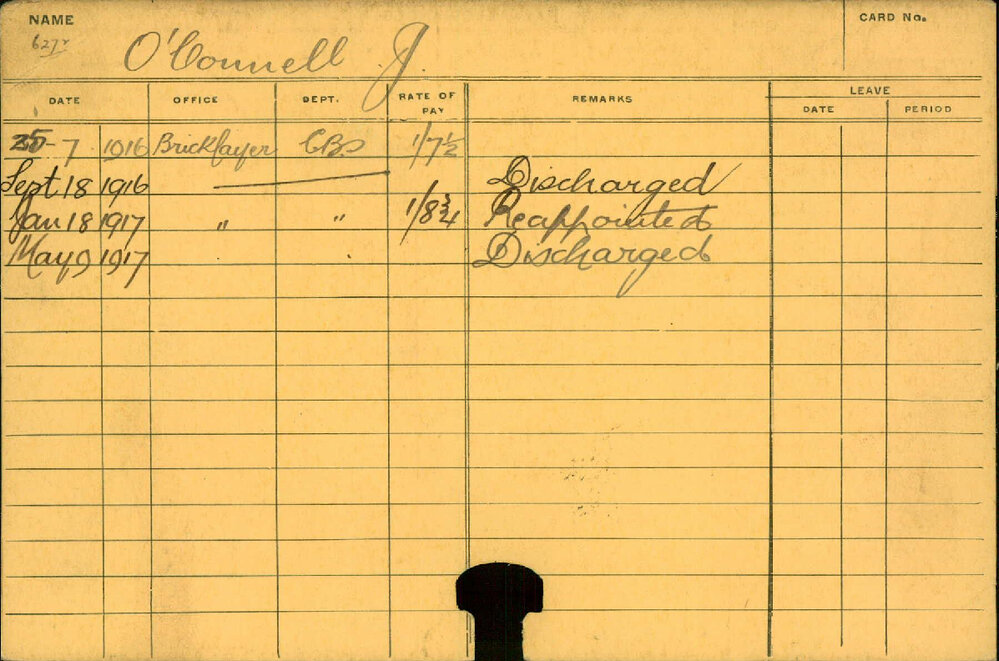 NAME
CARD No.
627
O'Connell J.
DATE OFFICE DEPT. RATE OF PAY REMARKS LEAVE
DATE PERIOD
25-7 1916 Bricklayer CBS 1/7½
Sept 18 1916 Discharged
Jan 18 1917 " " 1/8¾ Reappointed
May 9 1917 Discharged